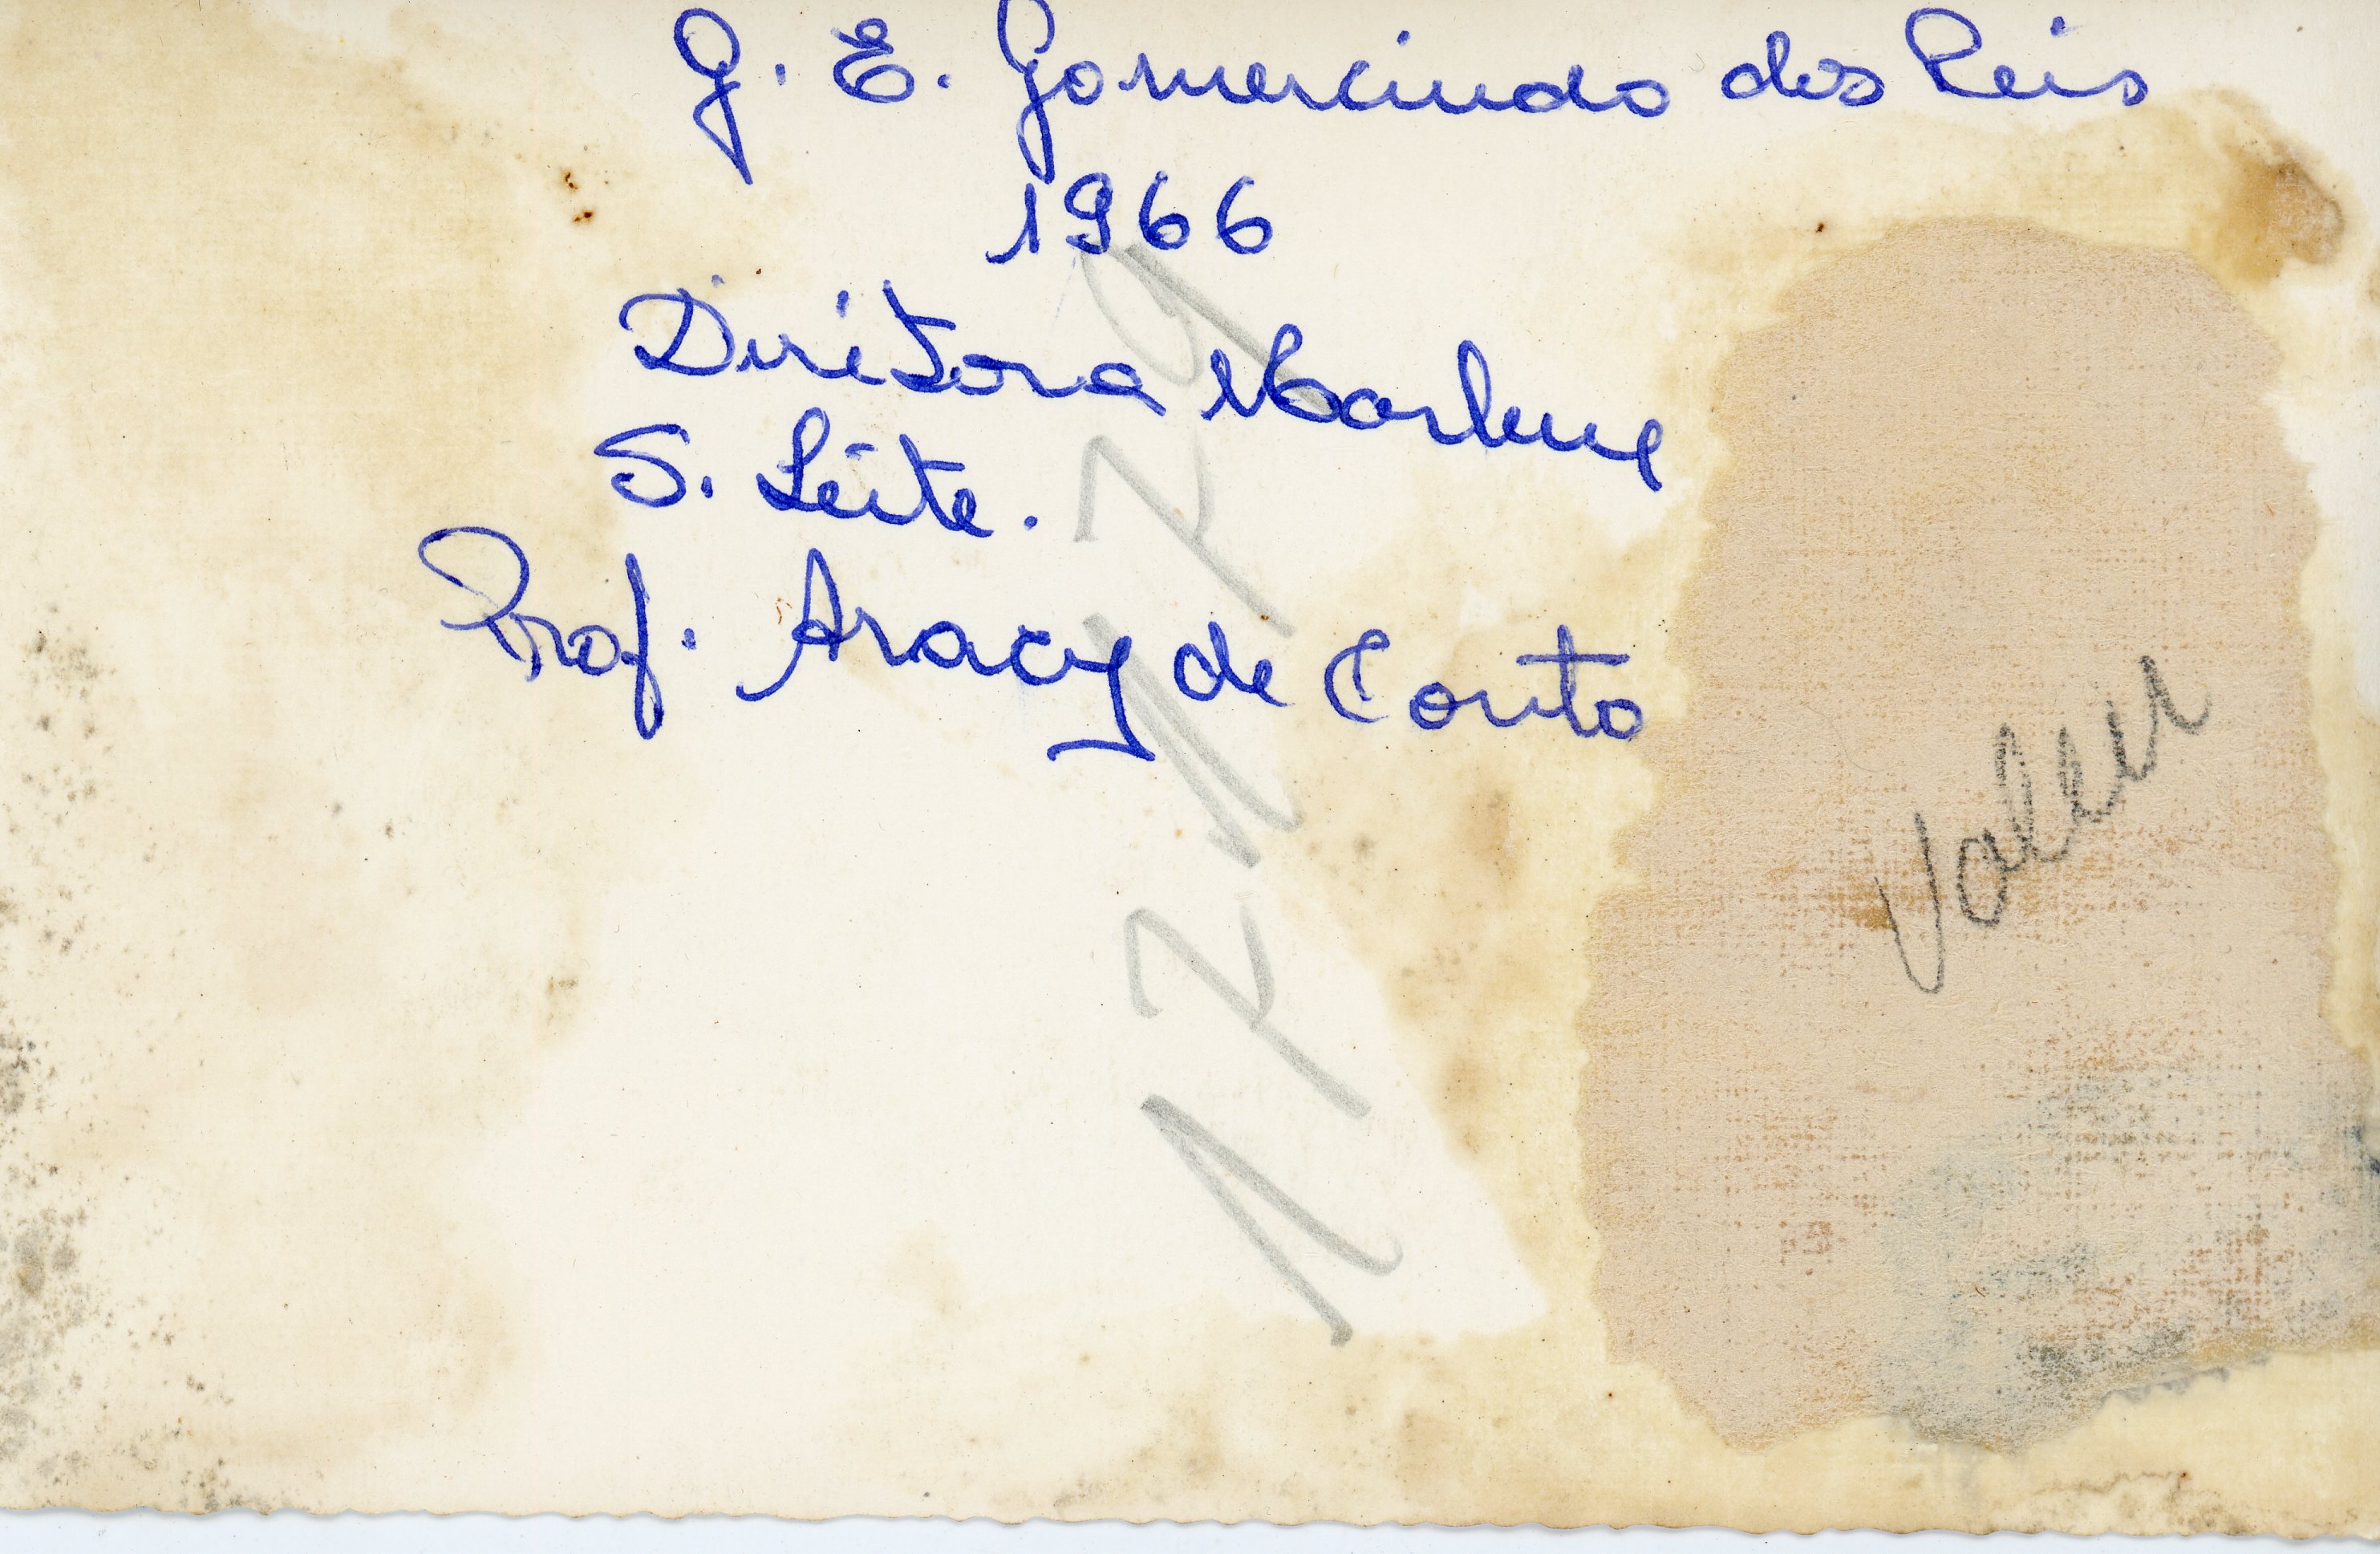 G. E. Gomercindo dos Reis
1966
Diretora Marlene
S. Leite.
Prof. Aracy de Conto